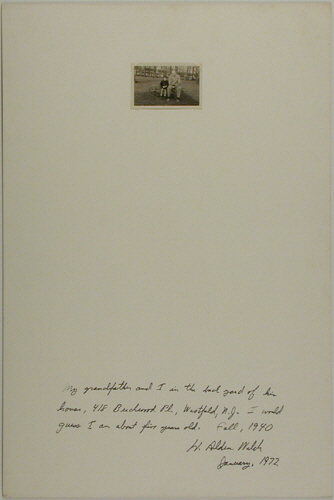 My grandfather and I in the back yard of his
house, 418 Beechwood Pl., Westfield, N.J. I would
guess I am about five years old. Fall, 1940
W. Alden Welch
January, 1972